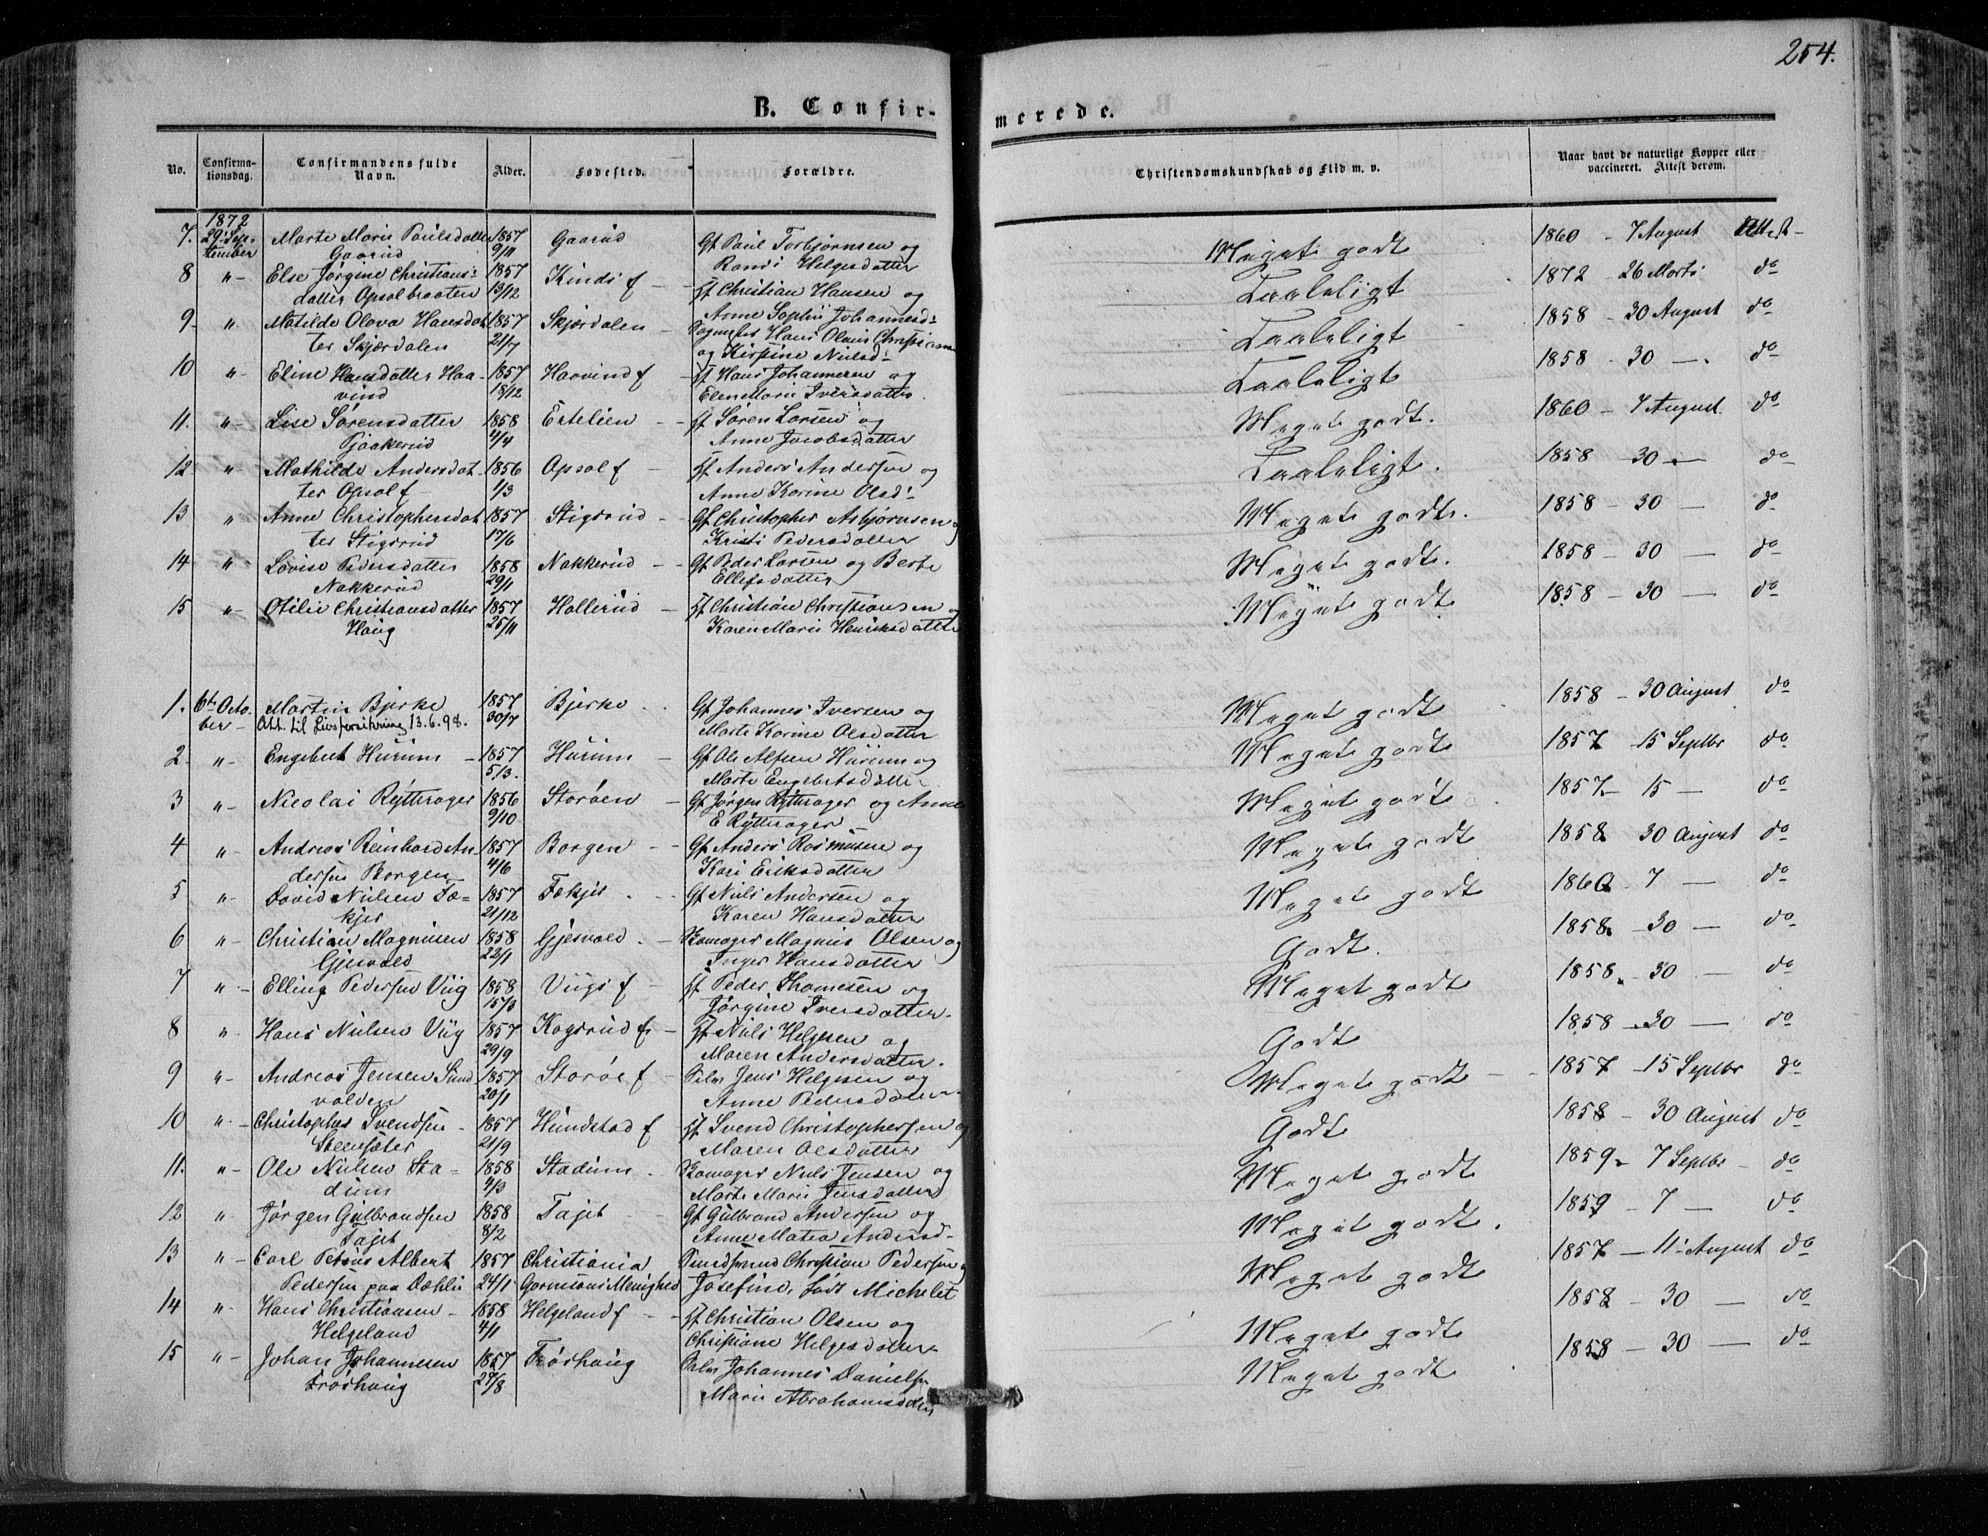 254.
B. Confir-
merede.
No.
Confirma-
tionsdag.
Confirmandens fulde
Navn.
Alder.
Fødested.
Forældre.
Christendomskundskab og Flid m. v.
Naar havt de naturlige Kopper eller
vaccineret. Attest derom.
1872
7. 29. Sep- Marte Marie Paulsdatter 1857 Gaarud Gf Paul Torbjørnsen og Meget godt 1860 - 7 August Attest
tember Gaarud 9/11 Randi Helgesdatter
8 " Else Jørgine Christians- 1857 Kinds f - ff Christian Hansen og Taaleligt 1872 - 26 Marts do
datter Opsalbraaten 13/12 Anne Sophie Johannesd:
9 " Matilde Olava Hansdat 1857 Skjærdalen Hans Olaus Christiansen Taaleligt 1858 - 30 August do
ter Skjærdalen 21/7 og Kirstine Nielsd:
10 " Eline Hansdatter Haa- 1857 Haavind f - ff Hans Johannesen og Taaleligt 1858 - 30 - do
vind 18/12 Elen Marie Iversdatter.
11. " Lise Sørensdatter 1858 Estelien - ff Søren Larsen og Meget godt. 1860 - 7 August do
Bjaakerud 4/4 Anne Jacobsdatter
12 " Mathilde Andersdat- 1856 Opsal f - ff Anders Andersen og Taaleligt. 1858 - 30 - do
ter Opsal f 1/3 Anne Karine Olsd:
13 " Anne Christophersdat 1857 Stigsrud - Gf Christopher Asbjørnsen og Meget godt. 1858 - 30 - do
ter Stigsrud 17/6 Kristi Pedersdatter
14 " Lovise Pedersdatter 1858 Nakkerud - Gf Peder Larsen og Berte Meget godt. 1858 - 30 - do
Nakkerud 29/1 Ellefsdatter
15 " Otilie Christiansdatter 1857 Hallerud - ff Christian Christiansen og Meget godt 1858 - 30 - do
Haug 25/11 Karen Marie Henriksdatter
1. 6te Octo- Martin Bjerke 1857 Bjerke Gf Johannes Iversen og Meget godt 1858 - 30 August do
ber - Att. til Livsforsikring 13.6.98. 30/7 Marte Karine Olsdatter
2 " Engebret Hurum - 1857 Hurum - Gf Ole Alfsen Hurum og Meget godt 1857 - 15 Septbr do
5/3. Marte Engebretsdatter
3 " Nicolai Rytterager 1856 Storøen - Gf Jørgen Rytterager og Anne Meget godt 1857 - 15 - do
9/10 E Rytterager
4 " Andreas Reinhard An- 1857 Borgen - Gf Anders Rasmusen og Meget godt 1858 30 August do
dersen Borgen 4/6 Kari Eriksdatter
5 " David Nielsen Fæ- 1857 Fækjer - Gf Niels Andersen og Meget godt 1860 - 7 - do
kjer 21/12 Karen Hansdatter
6 " Christian Magnusen 1858 Gjesvold. - Magnus Olsen og Godt. 1858 - 30 - do
Gjesvold 22/1 Inger Hansdatter
7 " Elling Pedersen Viig 1858 Viigs f - ff Peder Thomesen og Meget godt 1858 - 30 - do
15/3 Jørgine Iversdatter.
8 " Hans Nielsen Viig 1857 Kagsrud f - ff Niels Helgesen og Godt 1858 - 30 - do
29/9 Maren Andersdatter.
9 " Andreas Jensen Sund 1857 Storøe f Jens Helgesen og Meget godt - 1857 - 15 Septbr do
volden 20/1 Anne Pedersdatter.
10 " Christopher Svendsen - 1857 Hundstad f ff Svend Christophersen og Godt 1858 - 30 August do
Steensæter 21/9 Maren Olsdatter
11. " Ole Nielsen Sta- 1858 Stadum. Niels Jensen og Meget godt 1859 - 7 Septbr do
dum 4/3 Marte Marie Jensdatter
12 " Jørgen Gulbrandsen 1858 Fajet - Gf Gulbrand Andersen og Meget godt. 1859 - 7 - do
Fajet 8/2 Anne Matea Andersd-
13 " Carl Petrus Albert 1857 Christiania Christian Pedersen og Meget godt 1857 - 11 August do
Pedersen paa Dæhli 24/1 Garnisons Menighed Josefine, født Michelet
14 " Hans Christiansen - 1858 Helgeland f - ff Christian Olsen og Meget godt 1858 - 30 - do
Helgeland 4/1 Christiane Helgesdatter
15 " Johan Johannesen 1857 Frøshaug Johannes Danielsen Meget godt 1858 - 30 - do
Frøshaug 27/8 Marie Abrahamsdatter